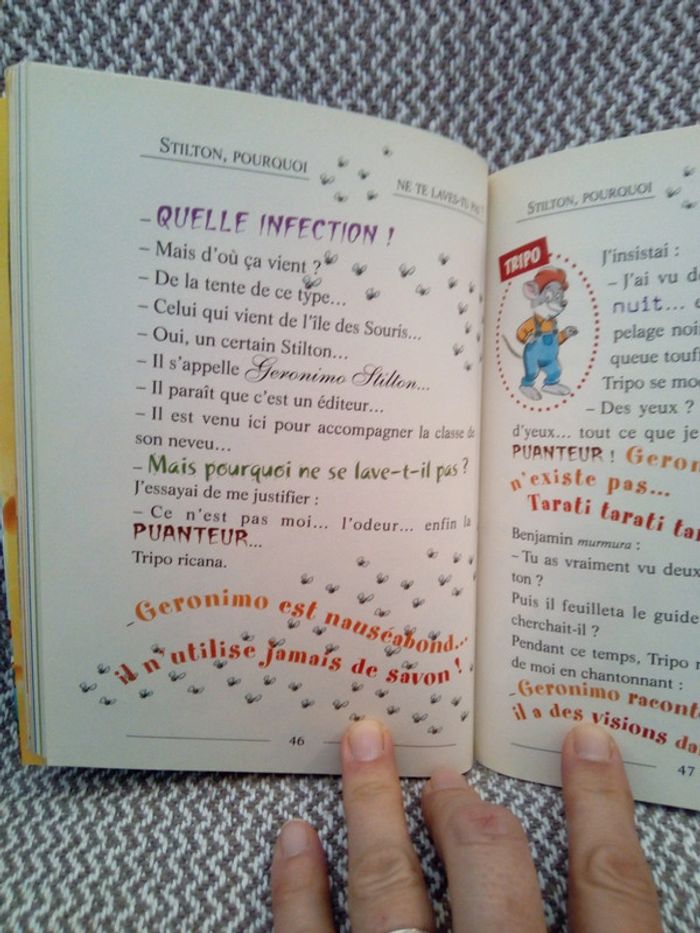 STILTON, POURQUOI
NE TE LAVES-TU
– QUELLE INFECTION !
– Mais d'où ça vient ?
– De la tente de ce type...
– Celui qui vient de l'île des Souris...
– Oui, un certain Stilton...
– Il s'appelle Geronimo Stilton...
– Il paraît que c'est un éditeur...
– Il est venu ici pour accompagner la classe de
son neveu...
– Mais pourquoi ne se lave-t-il pas ?
J'essayai de me justifier :
– Ce n'est pas moi... l'odeur... enfin la
PUANTEUR...
Tripo ricana.
– Geronimo est nauséabond...
il n'utilise jamais de savon !
46
STILTON, POURQUOI
TRIPO
J'insistai :
– J'ai vu
nuit...
pelage
queue
Tripo se
– Des yeux ?
d'yeux... tout ce que je
PUANTEUR !
n'existe pas...
Tarati tarati
Benjamin murmura :
– Tu as vraiment vu deux
ton ?
Puis il feuilleta le guide
cherchait-il ?
Pendant ce temps, Tripo
de moi en chantonnant :
– Geronimo
il a des visions
47